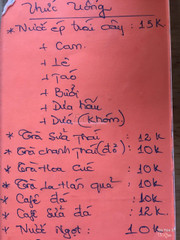 Thức Uống
* Nước ép trái cây : 15K
+ Cam
+ Lê
+ Táo
+ Bưởi
+ Dưa hấu
+ Dứa (khóm)
* Trà Sữa Thái : 12K
* Trà chanh Thái (đỏ) : 10K
* Trà Hoa Cúc : 10K
* Trà La Hán quả : 10K
* Café đá : 10K
* Café sữa đá : 12K
* Nước Ngọt : 10K